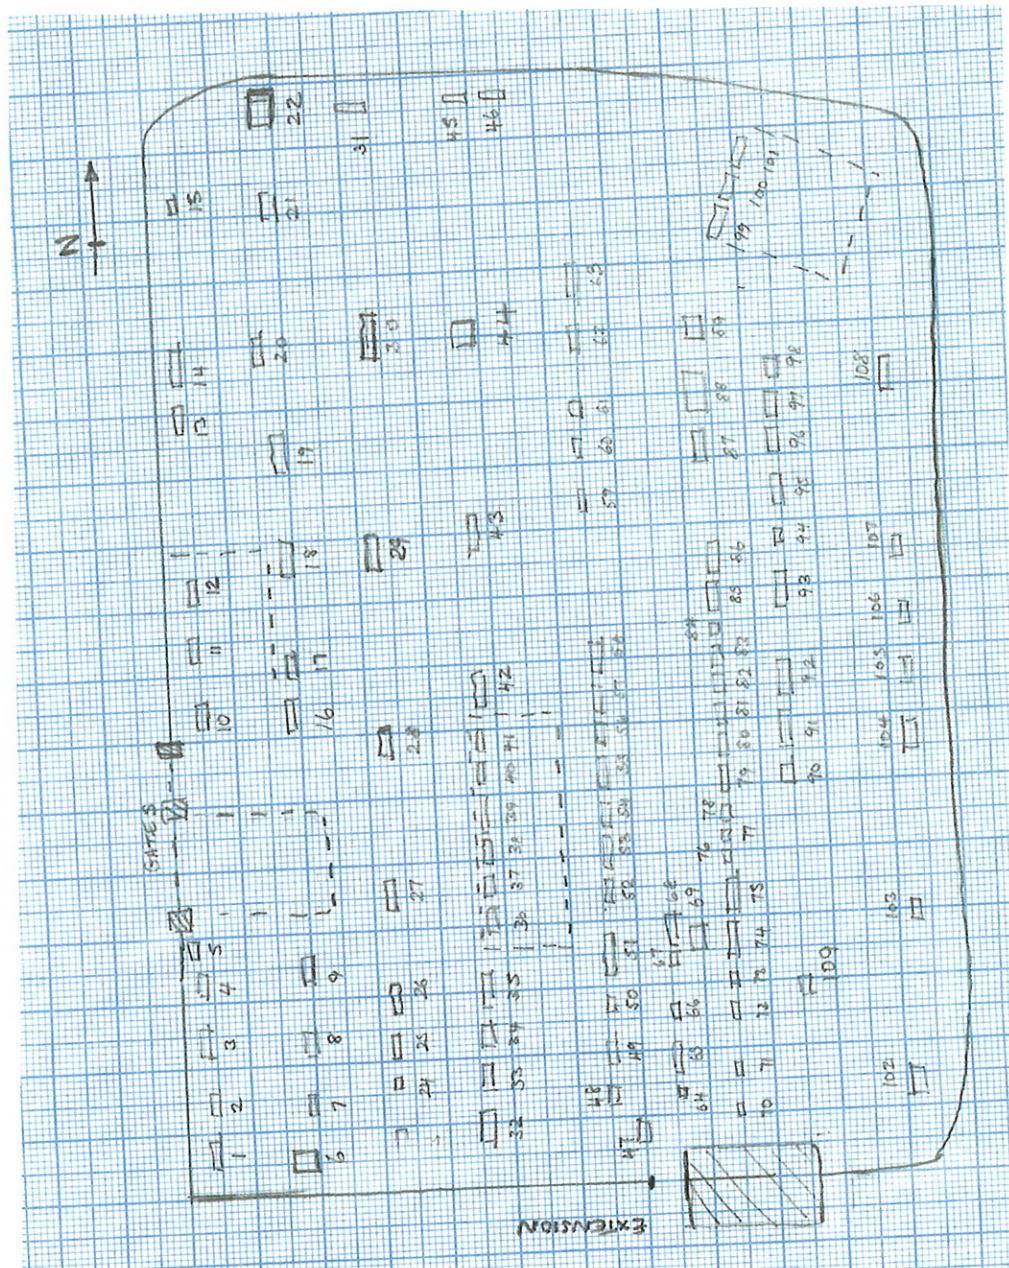 GATES
N
1 2 3 4 5 10 11 12 13 14 15
6 7 8 9 16 17 18 19 20 21 22
24 25 26 27 28 29 30 31
32 33 34 35 36 37 38 39 40 41 42 43 44 45 46
48 49 50 51 52 53 54 55 56 57 58 59 60 61 62 63
64 65 66 67 68 69
70 71 72 73 74 75 76 77 78 79 80 81 82 83 84 85 86 87 88 89
90 91 92 93 94 95 96 97 98
99 100 101
109
102 103 104 105 106 107 108
EXTENSION